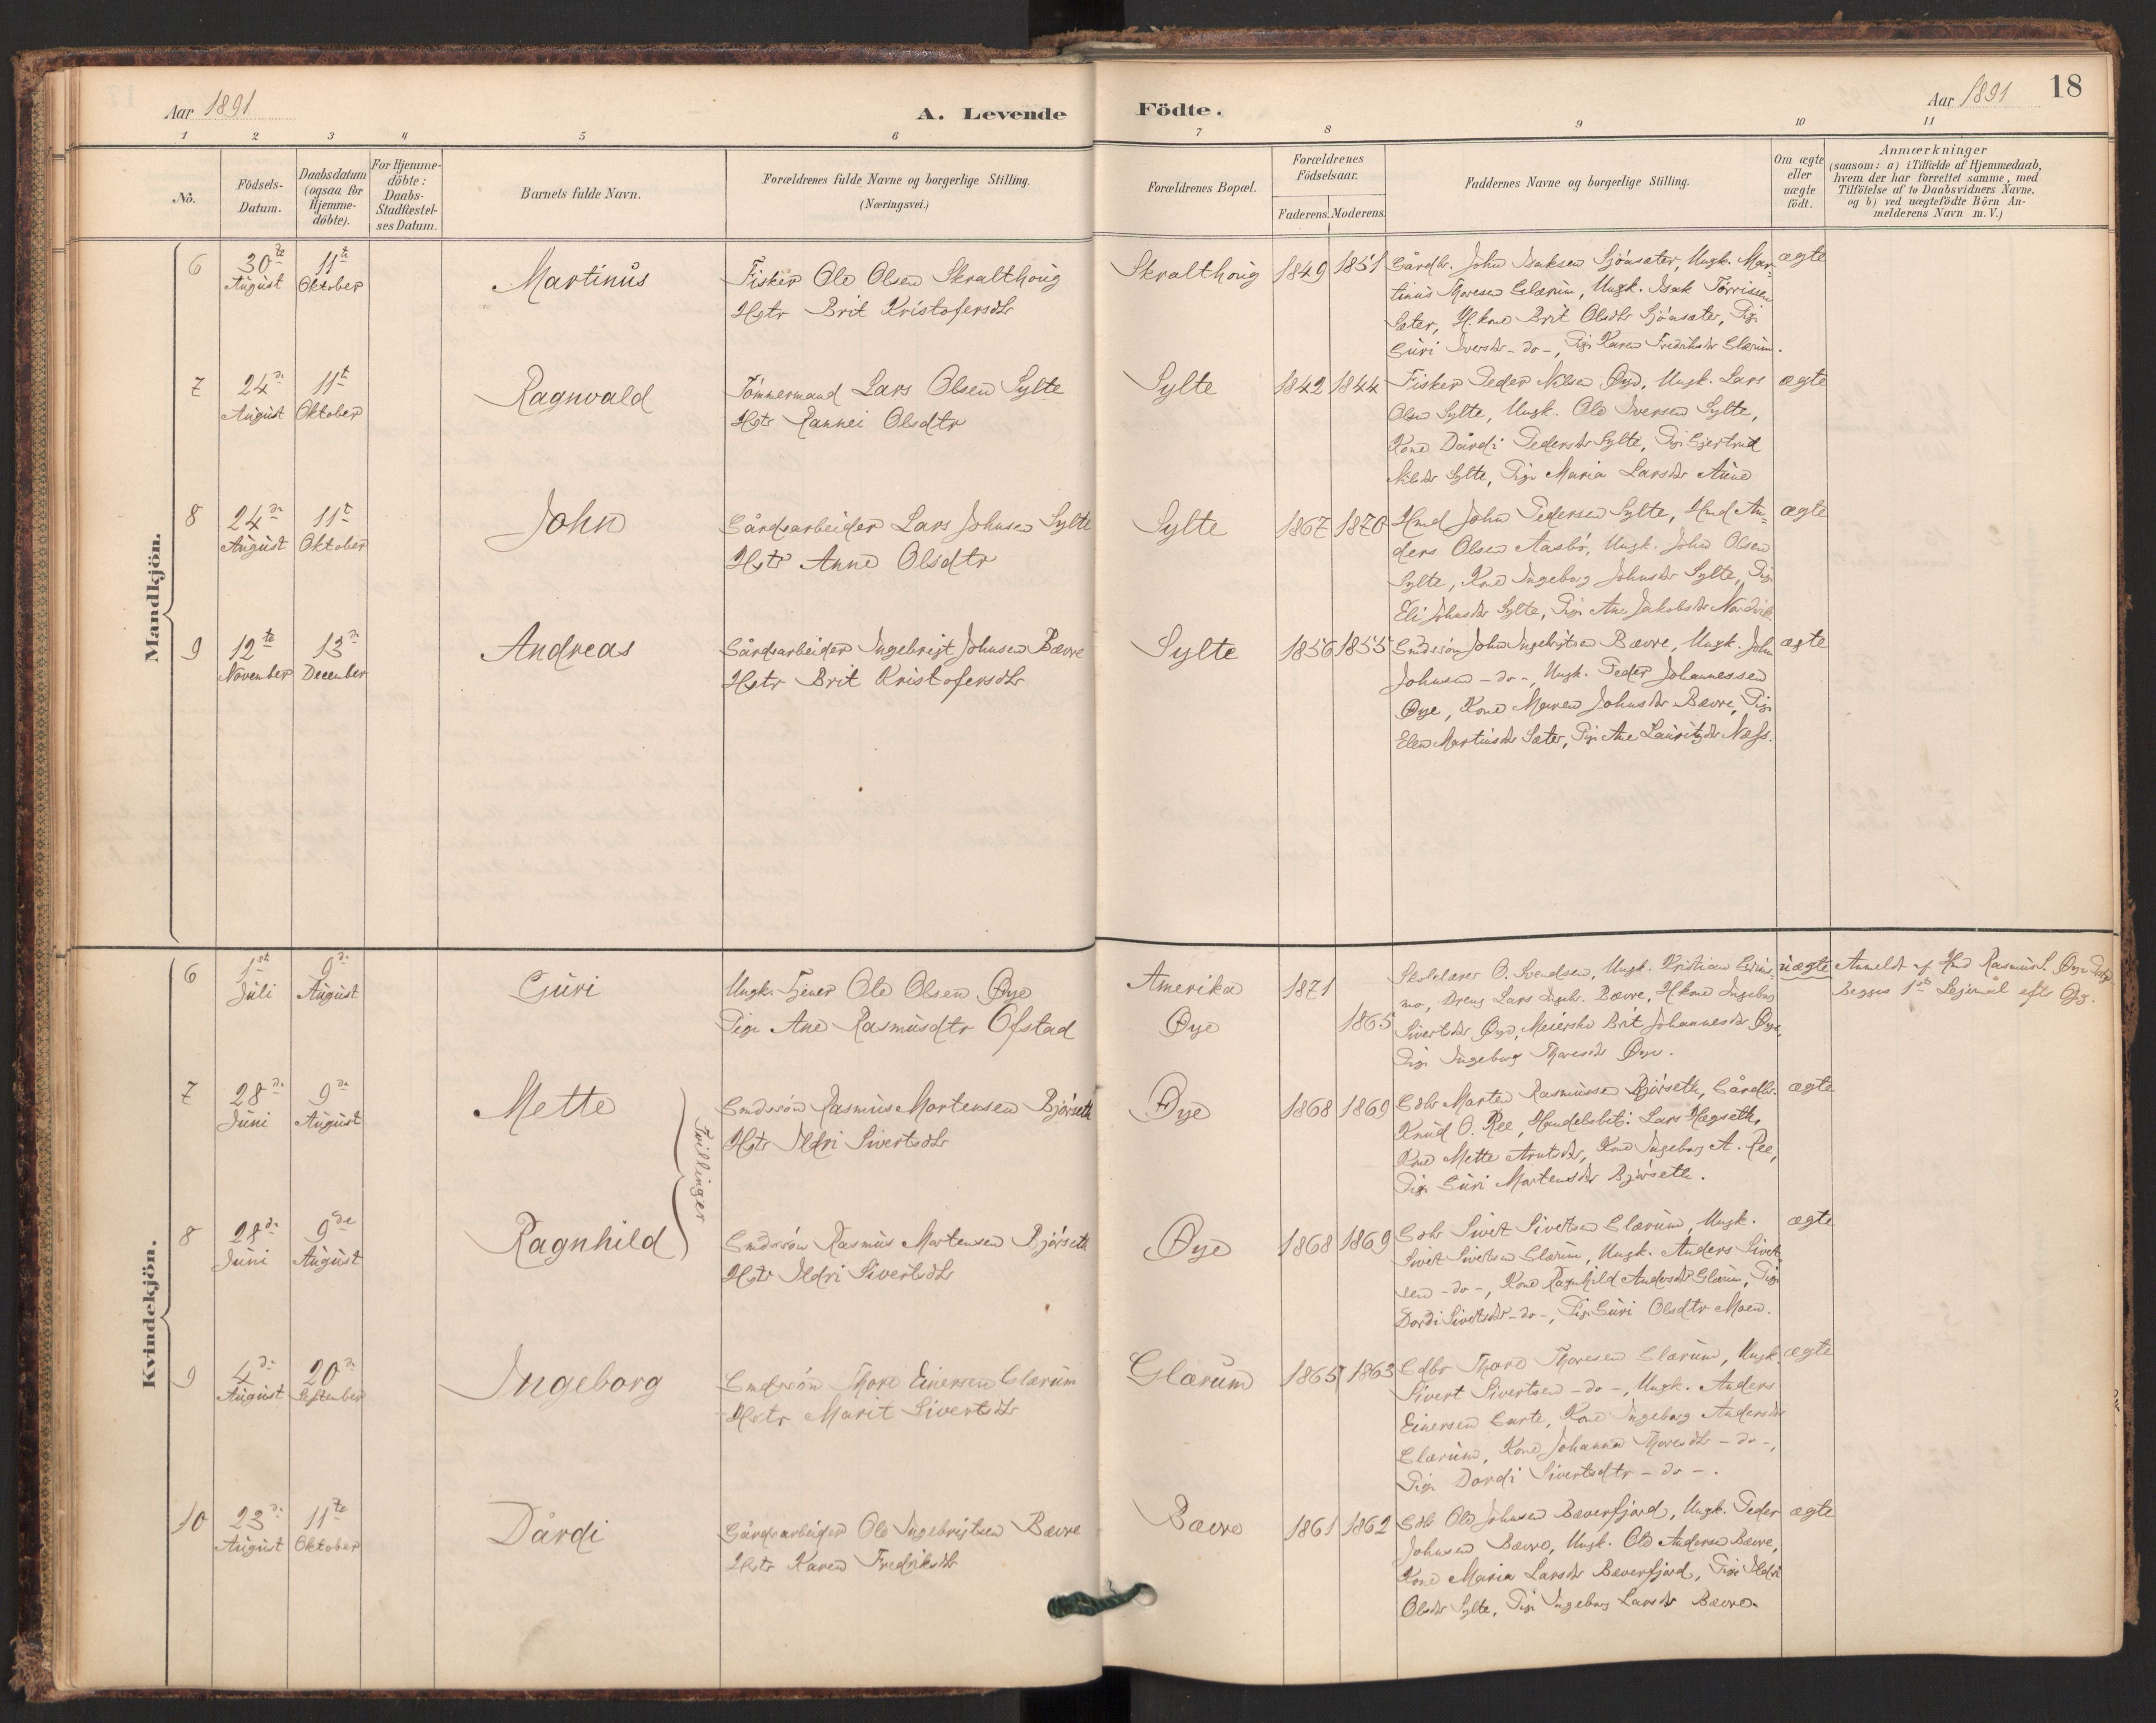 Aar 1891
A. Levende Födte.
Aar 1891
18
1 2 3 4 5 6 7 8 9 10 11
No.
Födsels-
Datum.
Daabsdatum
(ogsaa for
Hjemme-
döbte).
For Hjemme-
döbte:
Daabs-
Stadfæstel-
ses Datum.
Barnets fulde Navn.
Forældrenes fulde Navne og borgerlige Stilling.
(Næringsvei.)
Forældrenes Bopæl.
Forældrenes
Födselsaar.
Faderens. Moderens.
Faddernes Navne og borgerlige Stilling.
Om ægte
eller
uægte
födt.
Anmærkninger
(saasom: a) i Tilfælde af Hjemmedaab,
hvem der har forrettet samme, med
Tilföielse af to Daabsvidners Navne,
og b) ved uægtefödte Börn An-
melderens Navn m. V.)
Mandkjön.
6
30te
August
11te
Oktober
Martinus
Fisker Ole Olsen Skralthoug
Hstr Brit Kristofersdtr
Skralthoug
1849 1851
Gårdbr. John Isaksen Sjøasæter, Ungk. Mar-
tinus Thoresen Glærum, Ungk. Isak Torrissen
Sæter, H. kone Brit Olsdtr Sjøasæter, Pige
Guri Iversdtr -do-, Pige Karen Fredriksdtr Glærum.
ægte
7
24de
August
11te
Oktober
Ragnvald
Tømmermand Lars Olsen Sylte
Hstr Rannei Olsdtr
Sylte
1842 1844
Fisker Peder Nilsen Øye, Ungk. Lars
Olsen Sylte, Ungk. Ole Iversen Sylte,
Kone Dårdi Pedersdtr Sylte, Pige Gjertrud
Nilsdtr Sylte, Pige Maria Larsdtr Aune
ægte
8
24de
August
11te
Oktober
John
Gårdsarbeider Lars Johnsen Sylte
Hstr Anne Olsdtr
Sylte
1867 1870
Hmd John Pedersen Sylte, Hmd An-
ders Olsen Aasbø, Ungk. John Olsen
Sylte, Kone Ingeborg Johnsdtr Sylte, Pige
Eli Johnsdtr Sylte, Pige Ane Jakobsdtr Nordvik
ægte
9
12te
November
13de
December
Andreas
Gårdsarbeider Ingebrigt Johnsen Bævre
Hstr Brit Kristofersdtr
Sylte
1856 1855
Gmdssøn John Ingebrigtsen Bævre, Ungk. John
Johnsen -do-, Ungk. Peder Johannessen
Øye, Kone Maren Johnsdtr Bævre, Pige
Elen Martinsdtr Sæter, Pige Ane Lauritzdtr Næss.
ægte
Kvindekjön.
6
1ste
Juli
9de
August
Guri
Ungk. Tjener Ole Olsen Øye
Pige Ane Rasmusdtr Ofstad
Amerika
Øye
1871
1865
Skolelærer O. Svendsen, Ungk. Kristian
mo, Dreng Lars Ingebr. Bævre, H kone Ingeborg
Sivertsdtr Øye, Meierske Brit Johannesdtr Øye,
Pige Ingeborg Thoresdtr Øye.
uægte
Anmeldt af Hmd Rasmus S. Øye
Begges 1ste Leiermål efter Opg.
7
28de
Juni
9de
August
Mette
Tvillinger
Gmdssøn Rasmus Mortensen Bjørseth
Hstr Ildri Sivertsdtr
Øye
1868 1869
Gdbr Morten Rasmussen Bjørseth, Gårdbr.
Knud O. Ree, Handelsbetj: Lars Hegseth,
Kone Mette Arntsdtr, Kone Ingeborg A. Ree,
Pige Guri Mortensdtr Bjørseth.
ægte
8
28de
Juni
9de
August
Ragnhild
Gmdssøn Rasmus Mortensen Bjørseth
Hstr Ildri Sivertsdtr
Øye
1868 1869
Gdbr Sivert Sivertsen Glærum, Ungk.
Sivert Sivertsen Glærum, Ungk. Anders Sivert-
sen -do-, Kone Ragnhild Andersdtr Glærum, Pige
Dordi Sivertsdtr -do-, Pige Guri Olsdtr Moen.
ægte
9
4de
August
20de
September
Ingeborg
Gmdssøn Thore Einersen Glærum
Hstr Marit Sivertsdtr
Glærum
1865 1863
Gdbr Thore Thoresen Glærum, Ungk.
Sivert Sivertsen -do-, Ungk. Anders
Einersen Garte, Kone Ingeborg Andersdtr
Glærum, Kone Johanna Thoresdtr -do-,
Pige Dordi Sivertsdtr -do-.
ægte
10
23de
August
11te
Oktober
Dårdi
Gårdsarbeider Ole Ingebrigtsen Bævre
Hstr Karen Fredriksdtr
Bævre
1861 1862
Gdbr Ole Johnsen Bæverfjord, Ungk. Peder
Johnsen Bævre, Ungk. Ole Andersen Bævre,
Kone Maria Larsdtr Bæverfjord, Pige Ildri
Olsdtr Sylte, Pige Ingeborg Larsdtr Bævre.
ægte